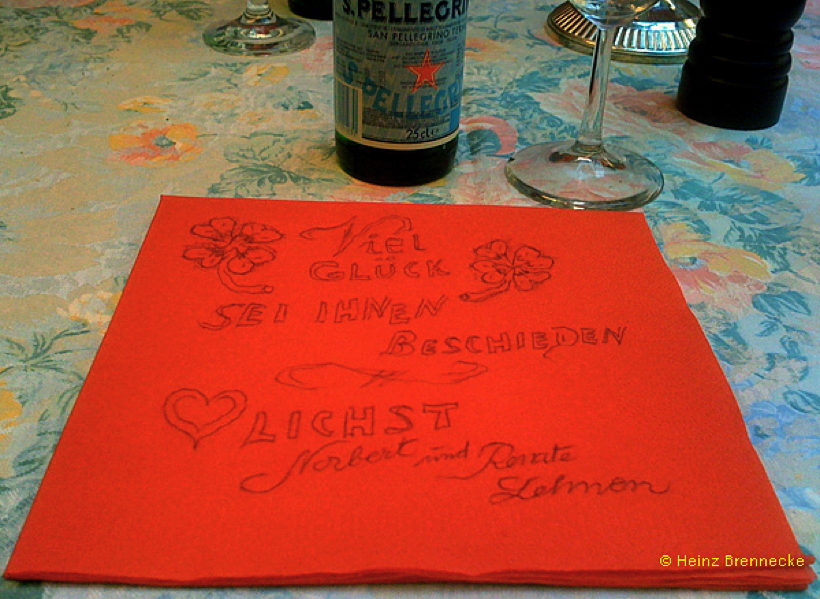 S.PELLEGRI
SAN PELLEGRINO TE
S.PELLEGRI
25cl e
Viel
GLÜCK
SEI IHNEN
BESCHIEDEN
LICHST
Norbert und Renate
Lehmon
© Heinz Brennecke